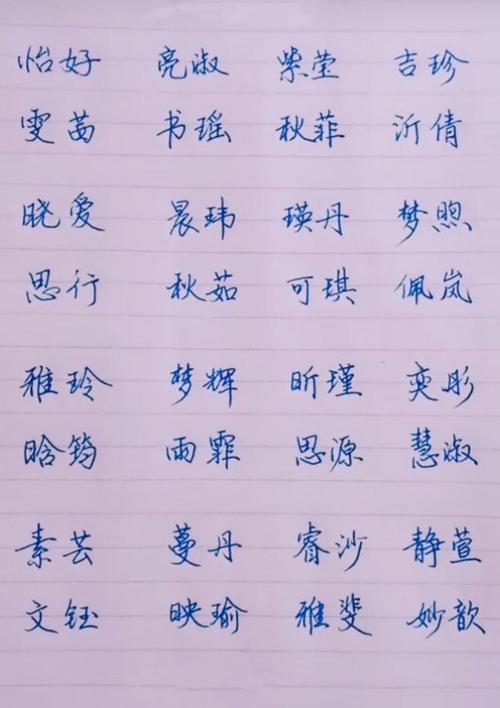 怡好 亮淑 紫莹 吉珍
雯茜 书瑶 秋菲 沂倩
晓爱 晨玮 瑛丹 梦煦
思行 秋茹 可琪 佩岚
雅玲 梦辉 昕瑾 奕彤
晗筠 雨霏 思源 慧淑
素芸 蔓丹 睿沙 静萱
文钰 映瑜 雅斐 妙歆